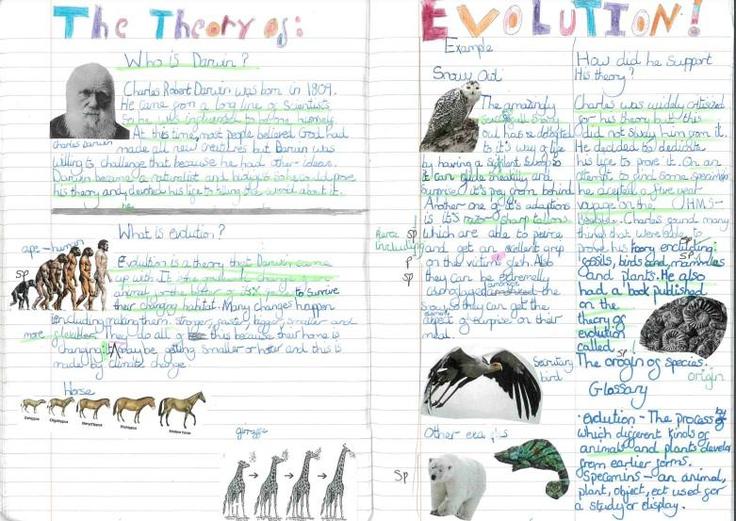 The Theory of:
Who is Darwin?
Charles Robert Darwin was born in 1809.
He came from a long line of Scientists
so he was influenced to be one himself.
At this time, most people believed God had
Charles Darwin
made all new creatures but Darwin was
willing to challenge that because he had other ideas.
Darwin became a naturalist and biologist so he could prove
his theory and devoted his life to telling the world about it.
he
What is evolution?
ape - human
sp
Evolution is a theory that Darwin came
up with. It is the
animal for the better or
to survive
their changing habitat. Many changes happen
including making them stronger, faster, bigger, smaller and
more
they do all of this because their home is
changing. It may be getting smaller or hotter and this is
made by climate change
Horse
giraffe
EVOLUTION!
Example
Snow Owl
The amazingly
successful snowy
owl has adapted
to it's way of life
by having a
it can glide sneakily and
surprise it's prey from behind.
Another one of it's adaptions
is it's razor sharp tallons
which are able to peirce
and get an excellent grip
on the victims flesh. Also
they can be extremelly
camoflayed amongst the
snow so they can get the
aspect of surprise on their
meal
Pierce
including
sp
P
sp
Secretary
bird
Other examples
Sp
How did he support
His theory?
Charles was widely critisized
for his theory but this
did not stop him from it.
He decided to dedicate
his life to prove it. On an
attempt to find some specimens
he accepted a five year
voyage on the HMS-
Beagle. Charles found many
things that were able to
prove his theory encluding:
fossils, birds and mammals
and plants. He also
had a book published
on the
theory of
evolution
called
sp
The orogin of species.
origin
Glossary
· evolution - The process by
which different kinds of
animals and plants develop
from earlier forms.
· Specimins - an animal,
plant, object, ect used for
a study or display.